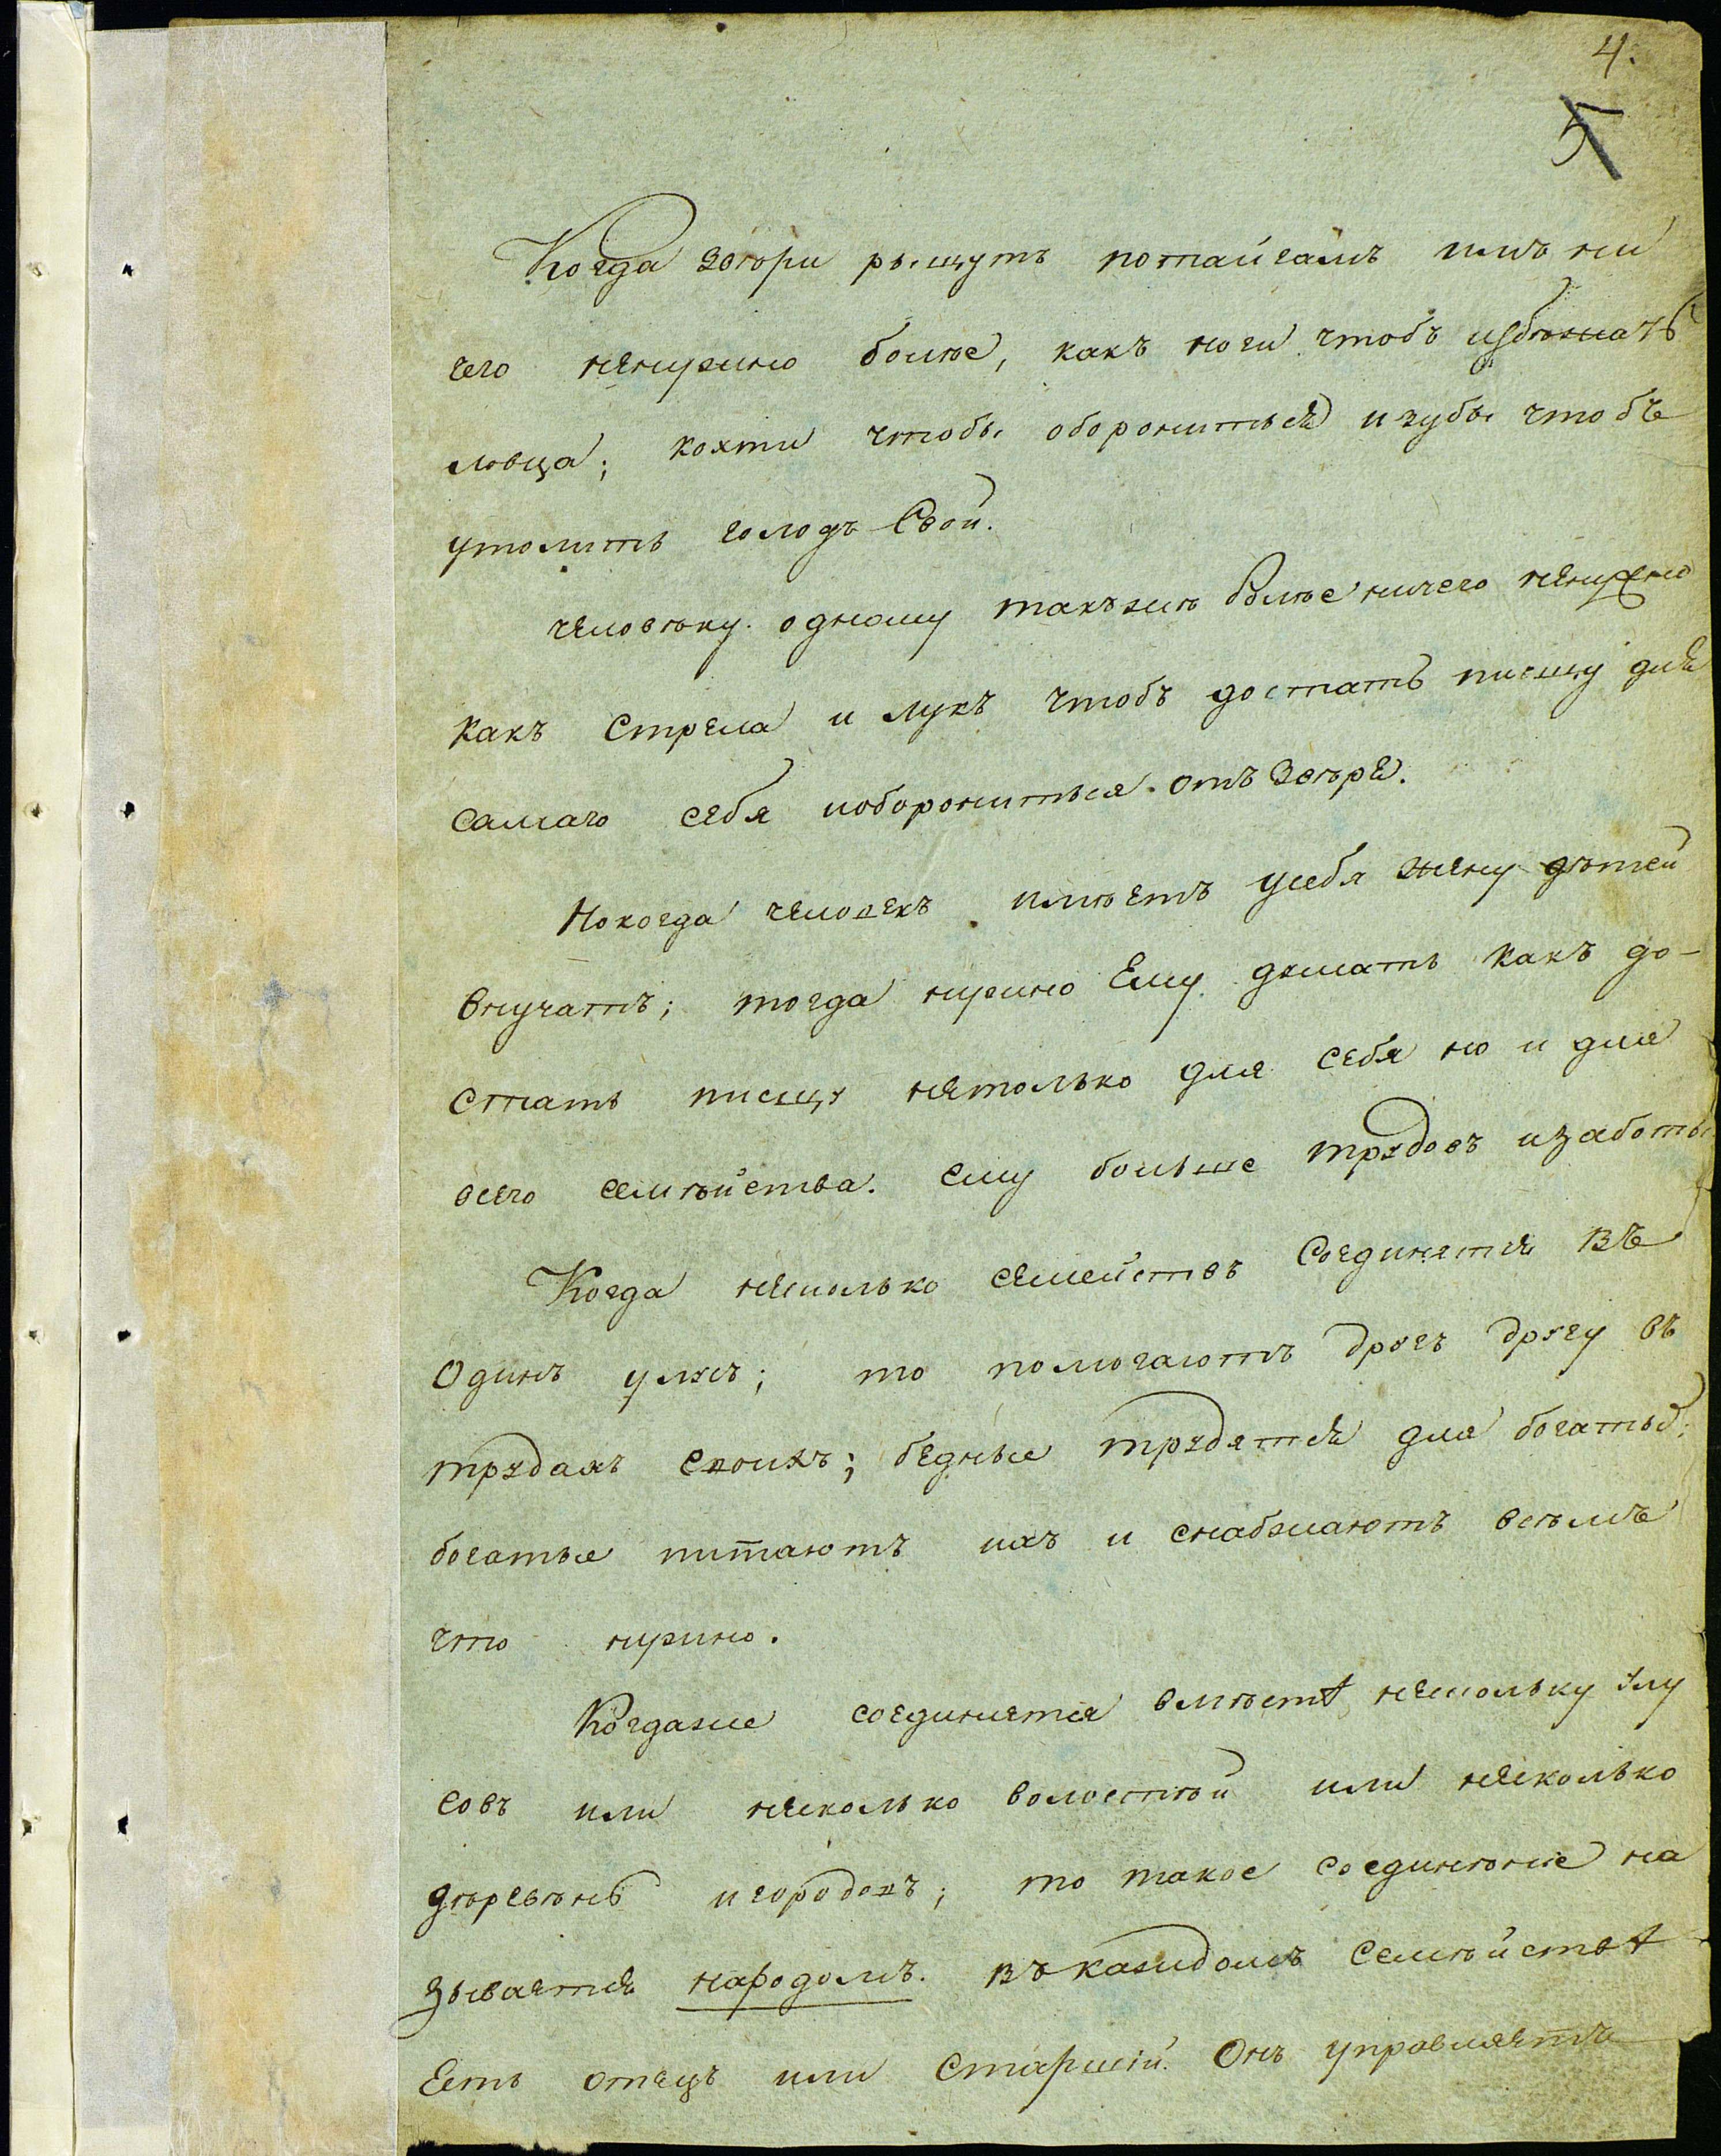 4.
5
Когда звѣри рыщутъ потайгамъ имъ ни
чего ненужно болѣе, какъ ноги чтобъ избѣжать
ловца; кохти чтобы оборониться изубы чтобъ
утолить голодъ Свой.
человѣку одному такъжѣ болѣе ничего ненужно
какъ Стрела и лукъ чтобъ достать писщу для
самаго себя иоборониться отъ звѣря.
Нокогда человекъ имѣетъ усебя жену дѣтей
внучатъ; тогда нужно Ему думать какъ до-
стать писщу нетолько для себя но и для
всего семѣйства. ему больше трудовъ изаботъ
Когда несколько семействъ Соединятся въ
Одинъ улусъ; то помогаютъ другъ другу въ
трудахъ своихъ; бедные трудятся для богатыхъ;
богатые питаютъ ихъ и снабжаютъ всѣмъ
что нужно.
Когдаже соединятся вмѣстѣ нескольку улу
совъ или несколько волостѣй или несколько
дѣревѣнь игородовъ; то такое соединѣние на
зывается народомъ. въкаждомъ семѣйствѣ
Есть отецъ или Старшій. Онъ управляетъ